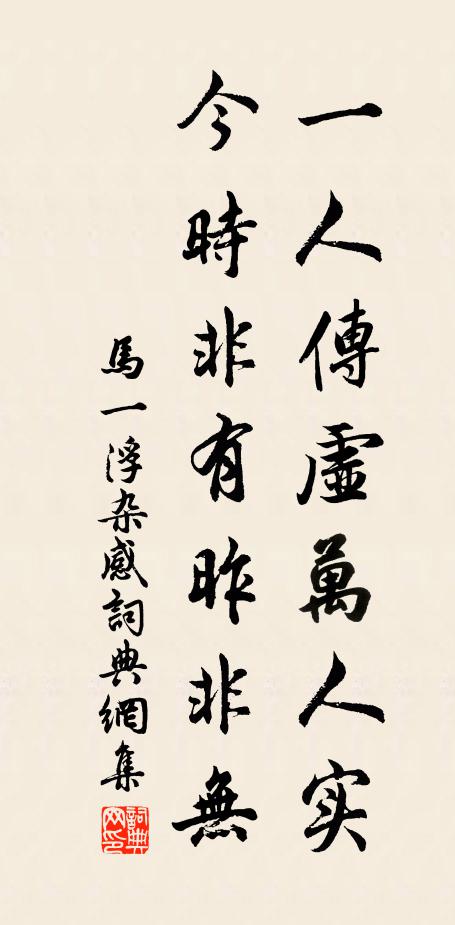 一人傳虛萬人实
今時非有昨非無
馬一浮杂感詞典網集
詞典网印